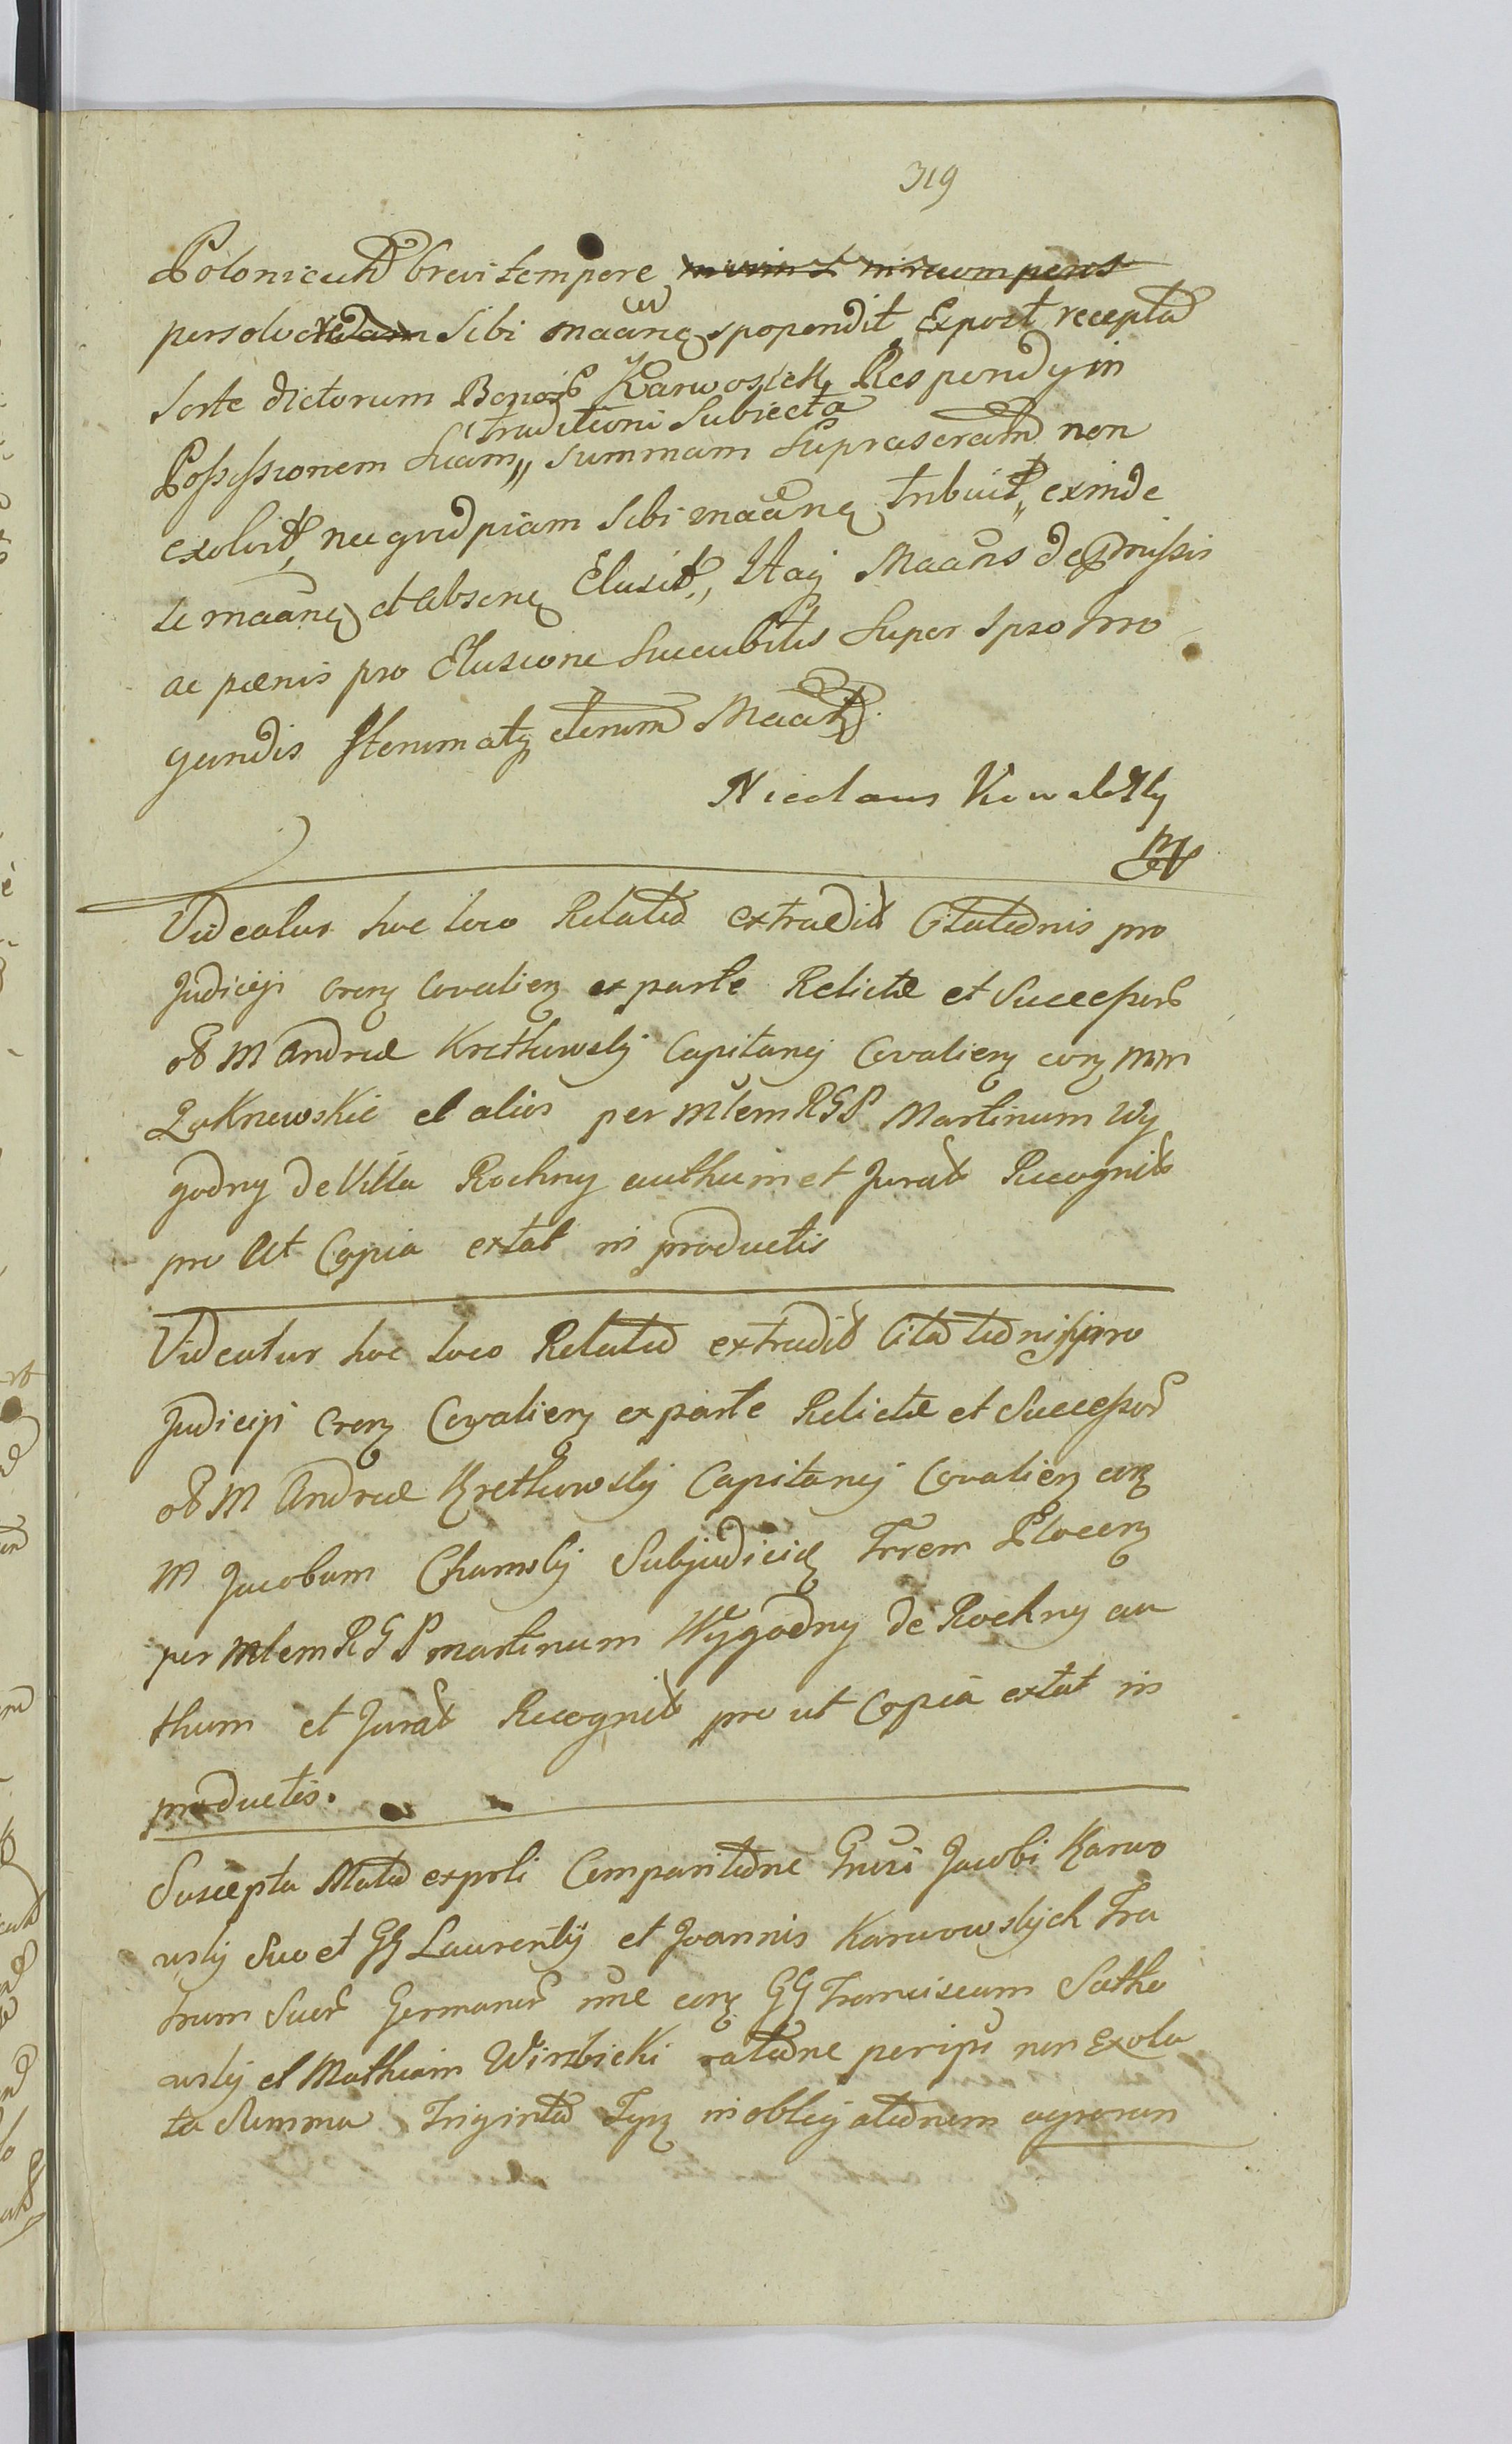 319
Polonicam brevi tempore
persolvendam Sibi maãne spopondit Expost recepta
Sorte dictorum Bonor Karwosiek Respondy in
traditioni Subiecta
Possessionem Suam,, Summam Suprascram non
exolvit, nec quidpiam Sibi maãne tribuit,, exinde
se maãne et absene Elusit,, Itaq Maãns de Pmissis
ac pænis pro Elusione Succubitis Super Ipso Irro
gandis Iterumatq iterum Maat
Nicolaus Kowalsky
Videatur hoc loco Relatio extradit Citationis pro
Judicijs Crorz Covalien ex parte Relictæ et Successor
ob M Andreæ Kretkowsky Capitanej Covalien corz MM
Zakrzewskie et alios per Mtem RGP Martinum Wy
godny de Villa Rochny authum et Jurat Recognit
pro Ut Copia extat in productis
Videatur hoc loco Relatio extradit Citationis pro
Judicijs Crorz Covalien ex parte Relictæ et Successor
ob M Andreæ Kretkowsky Capitanej Covalien corz
M Jacobum Chamsky Subjudicem Trrem Plocen
per Mtem RGP Martinum Wygodny de Rochny au
thum et Jurat Recognit pro ut Copia extat in
productis.
Suscepta Mata exprli Comparitione Gnusi Jacobi Karwo
wsky Suo et GG Laurentÿ et Joannis Karwowskych Fra
trum Suor Germanor nne corz GG Franciscum Sutko
wsky et Mathiam Wirzbicki ratione per ipsū non Exolu
ta Summa Triginta Tynf in obligationem agrorum